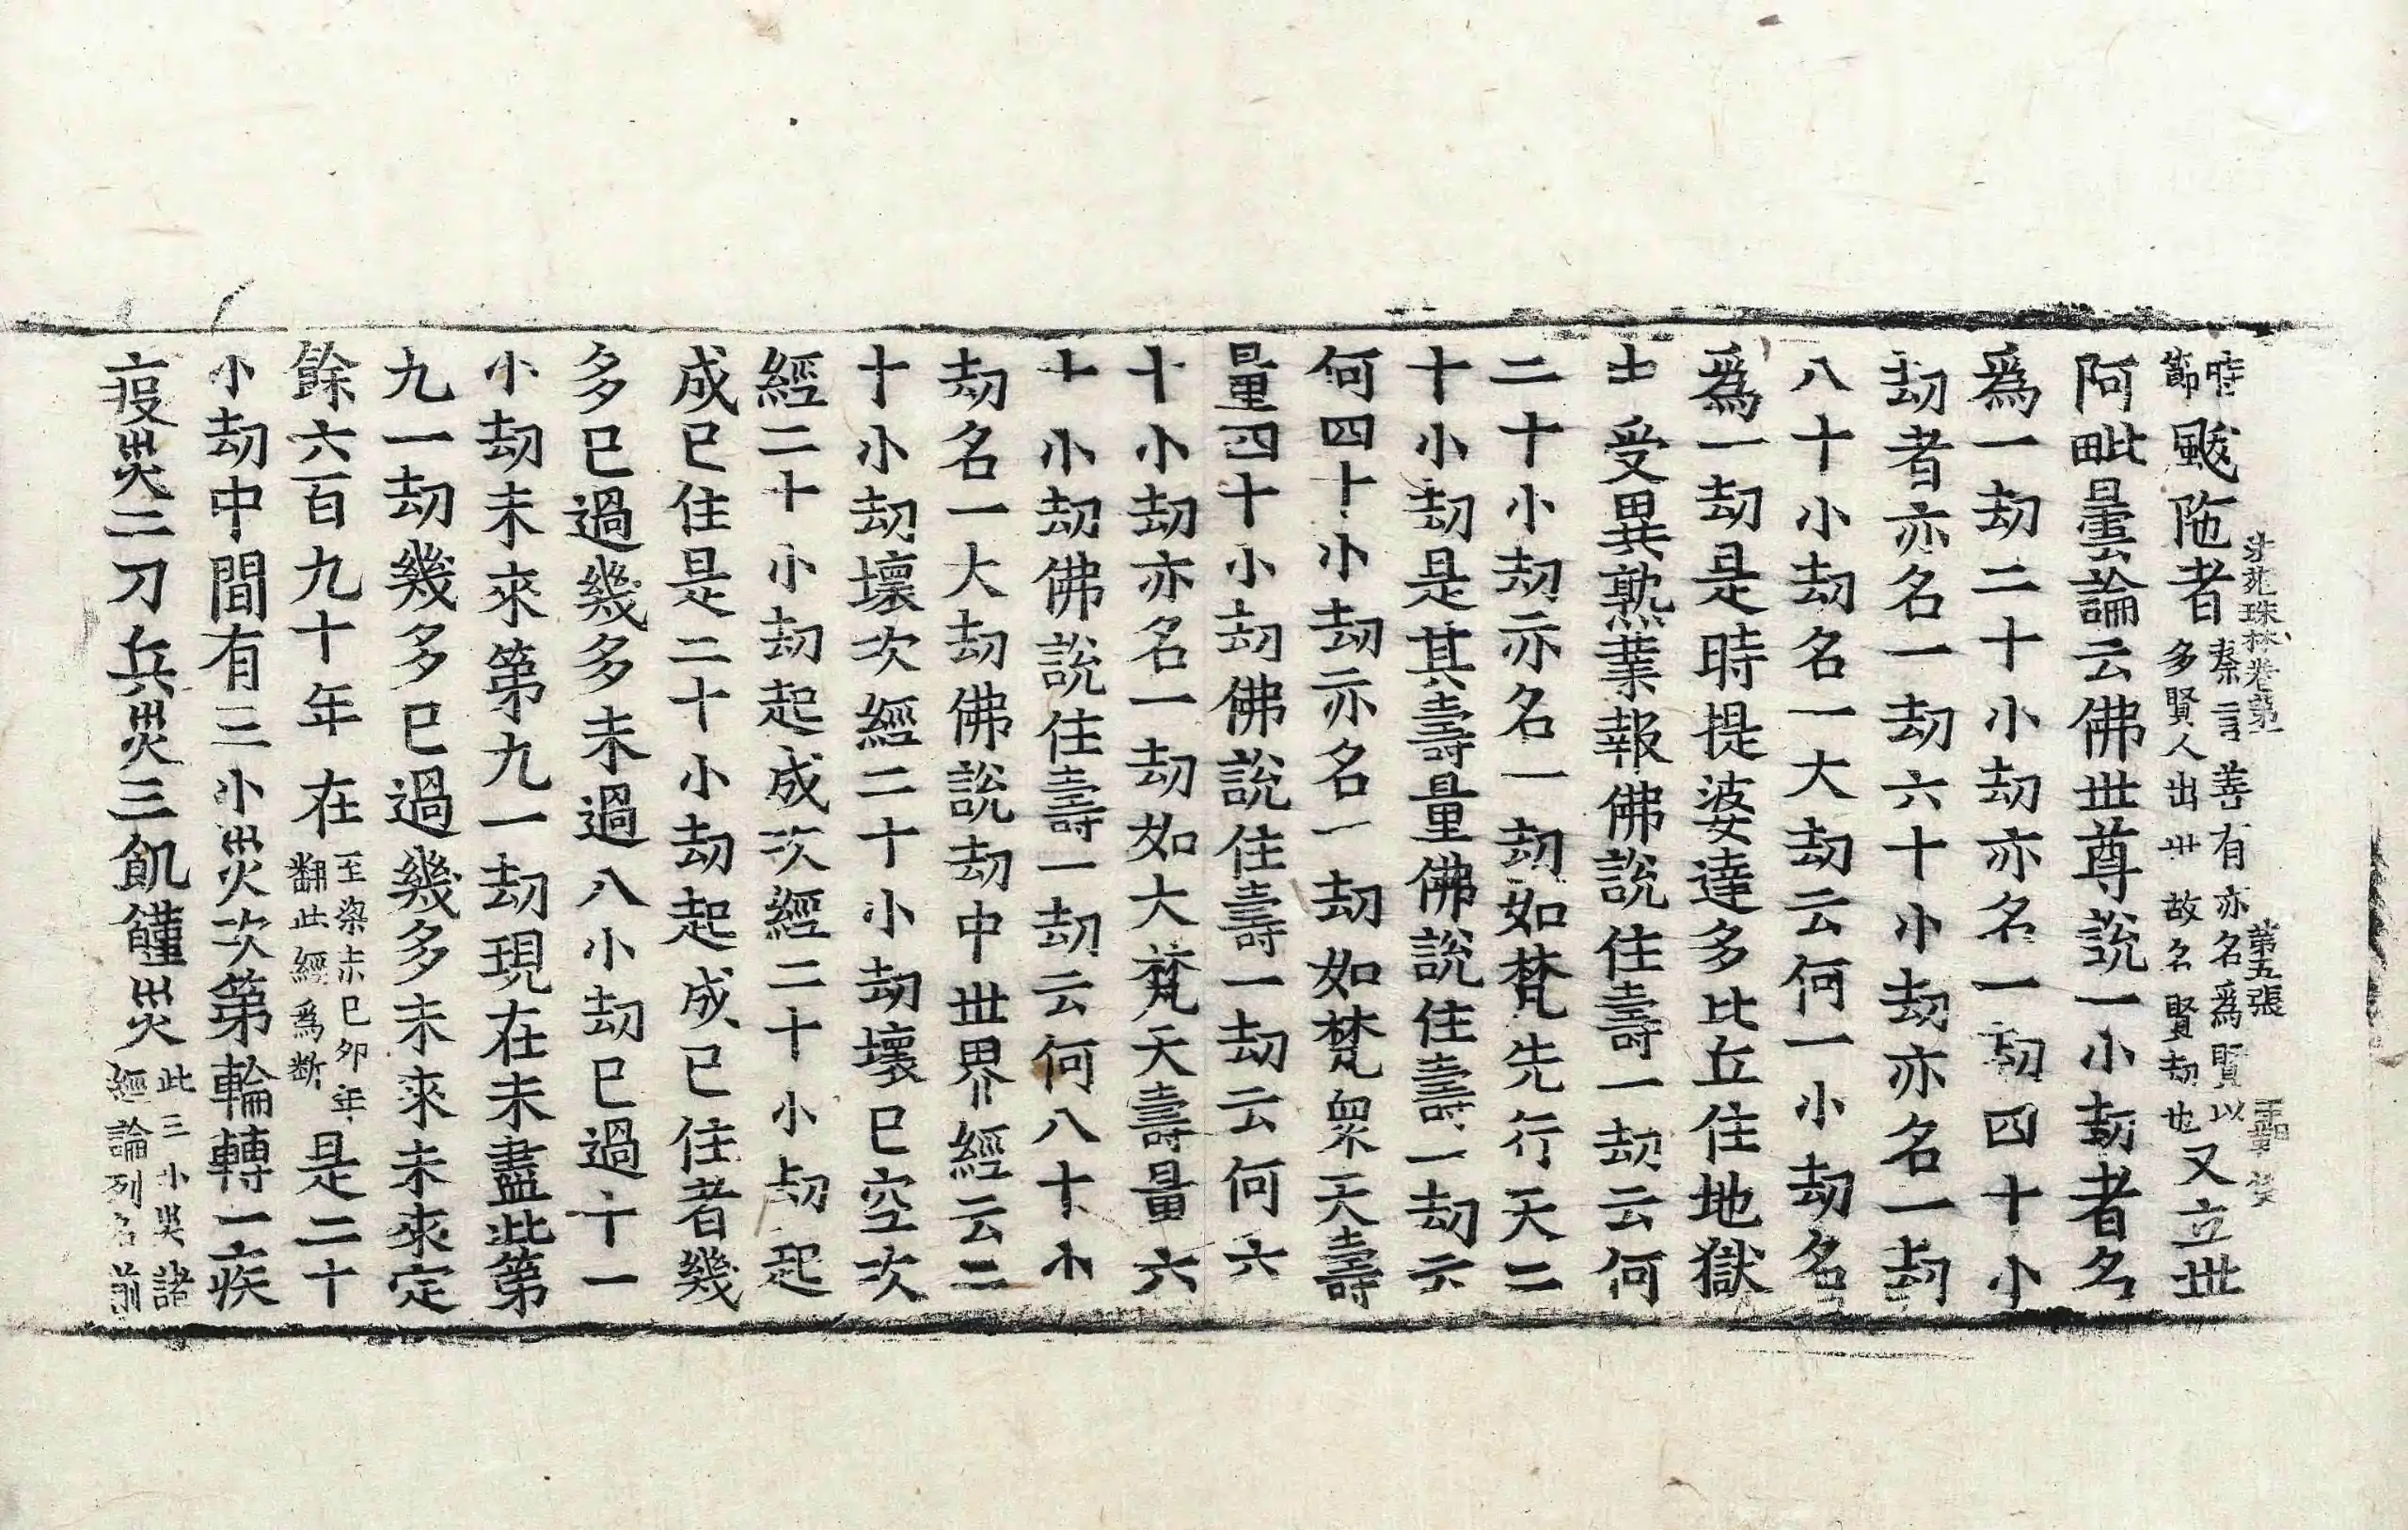 法苑珠林卷第一 第五張
時節颰陁者秦言善有亦名爲賢以多賢人出世故名賢劫也又立世
阿毗曇論云佛世尊說一小劫者名
爲一劫二十小劫亦名一劫四十小
劫者亦名一劫六十小劫亦名一劫
八十小劫名一大劫云何一小劫名
爲一劫是時提婆達多比丘住地獄
中受異熟業報佛說住壽一劫云何
二十小劫亦名一劫如梵先行天二
十小劫是其壽量佛說住壽一劫云
何四十小劫亦名一劫如梵衆天壽
量四十小劫佛說住壽一劫云何六
十小劫亦名一劫如大梵天壽量六
十小劫佛說住壽一劫云何八十小
劫名一大劫佛說劫中世界經云二
十小劫壞次經二十小劫壞已空次
經二十小劫起成次經二十小劫起
成已住是二十小劫起成已住者幾
多已過幾多未過八小劫已過十一
小劫未來第九一劫現在未盡此第
九一劫幾多已過幾多未來未來定
餘六百九十年在至梁末己卯年翻此經爲斷是二十
小劫中間有三小災次第輪轉一疾
疫災二刀兵災三飢饉災此三小災諸經論列名前